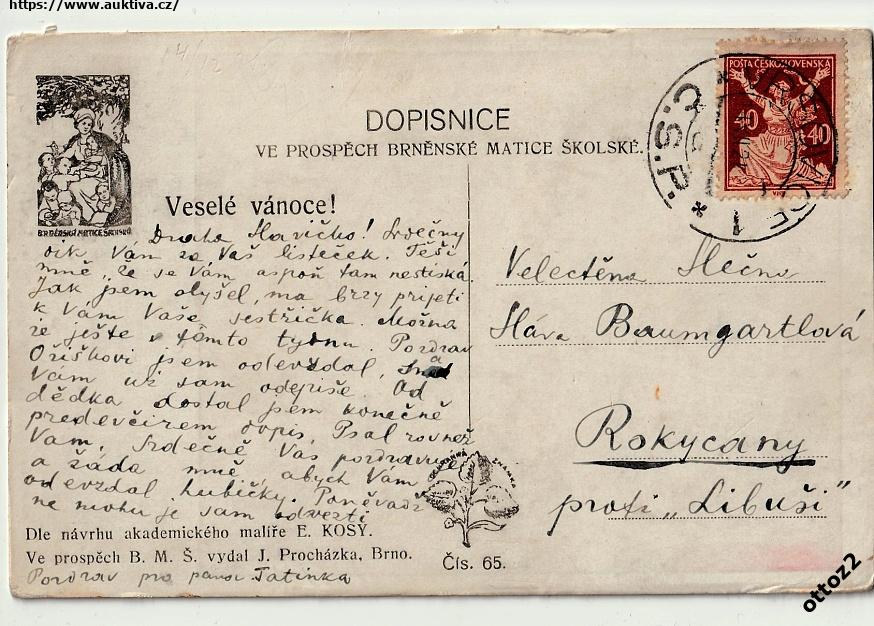 https://www.auktiva.cz/
14/12
POŠTA ČESKOSLOVENSKÁ
40 40
Č.S.P.
BRNĚNSKÁ MATICE ŠKOLSKÁ
DOPISNICE
VE PROSPĚCH BRNĚNSKÉ MATICE ŠKOLSKÉ.
Veselé vánoce!
Drahá Slavičko! Srdečný
dík Vám za Váš lísteček. Těší
mně, že se Vám aspoň tam nestýská.
Jak jsem slyšel, má brzy přijeti
k Vám Vaše sestřička. Možná
že ještě v tomto týdnu. Pozdrav
Oříškovi jsem odevzdal, snad
Vám už sám odepíše. Od
dědka dostal jsem konečně
předevčírem dopis. Psal rovněž
Vám. Srdečně Vás pozdravuje
a žádá mně, abych Vám
odevzdal hubičky. Poněvadž
ne mohu je sám odvezti
Velectěná Slečna
Sláva Baumgartlová
Rokycany
proti „Libuši"
OCHRANNÁ ZNÁMKA
Dle návrhu akademického malíře E. KOSÝ.
Ve prospěch B. M. Š. vydal J. Procházka, Brno.
Čís. 65.
Pozdrav pro pana Tatínka
ottoz2